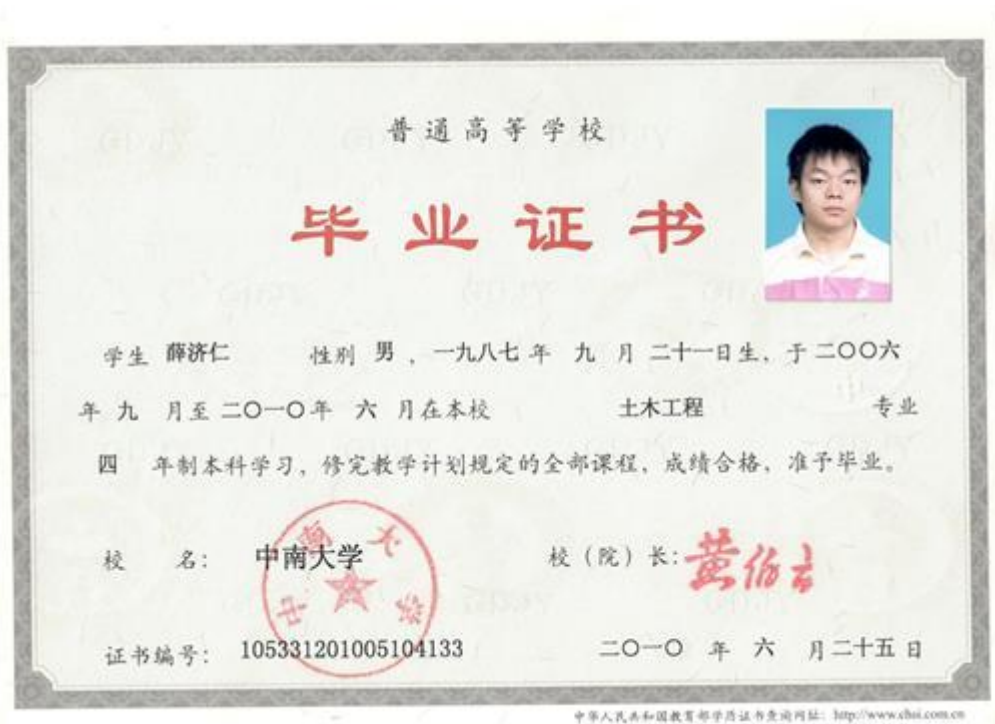 普通高等学校
毕业证书
学生 薛济仁 性别 男 ，一九八七 年 九 月 二十一日生，于 二〇〇六
年 九 月至 二〇一〇年 六 月在本校 土木工程 专业
四 年制本科学习，修完教学计划规定的全部课程，成绩合格，准予毕业。
校 名： 中南大学 校（院）长：黄伯云
中南大学
证书编号： 105331201005104133 二〇一〇 年 六 月二十五日
中华人民共和国教育部学历证书查询网址：http://www.chsi.com.cn